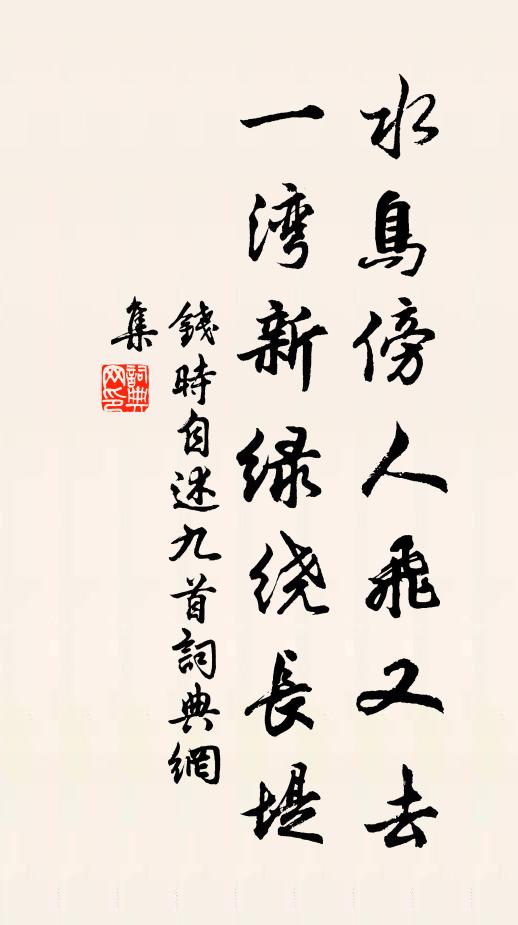 水鳥傍人飛又去
一湾新緑绕長堤
錢時自述九首詞典網
集
詞典
网印